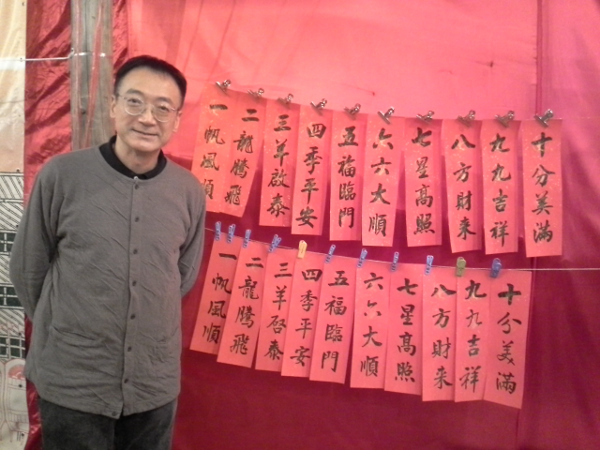 一帆風順
二龍騰飛
三羊啟泰
四季平安
五福臨門
六六大順
七星高照
八方財來
九九吉祥
十分美滿
一帆風順
二龍騰飛
三羊啓泰
四季平安
五福臨門
六六大順
七星高照
八方財來
九九吉祥
十分美滿